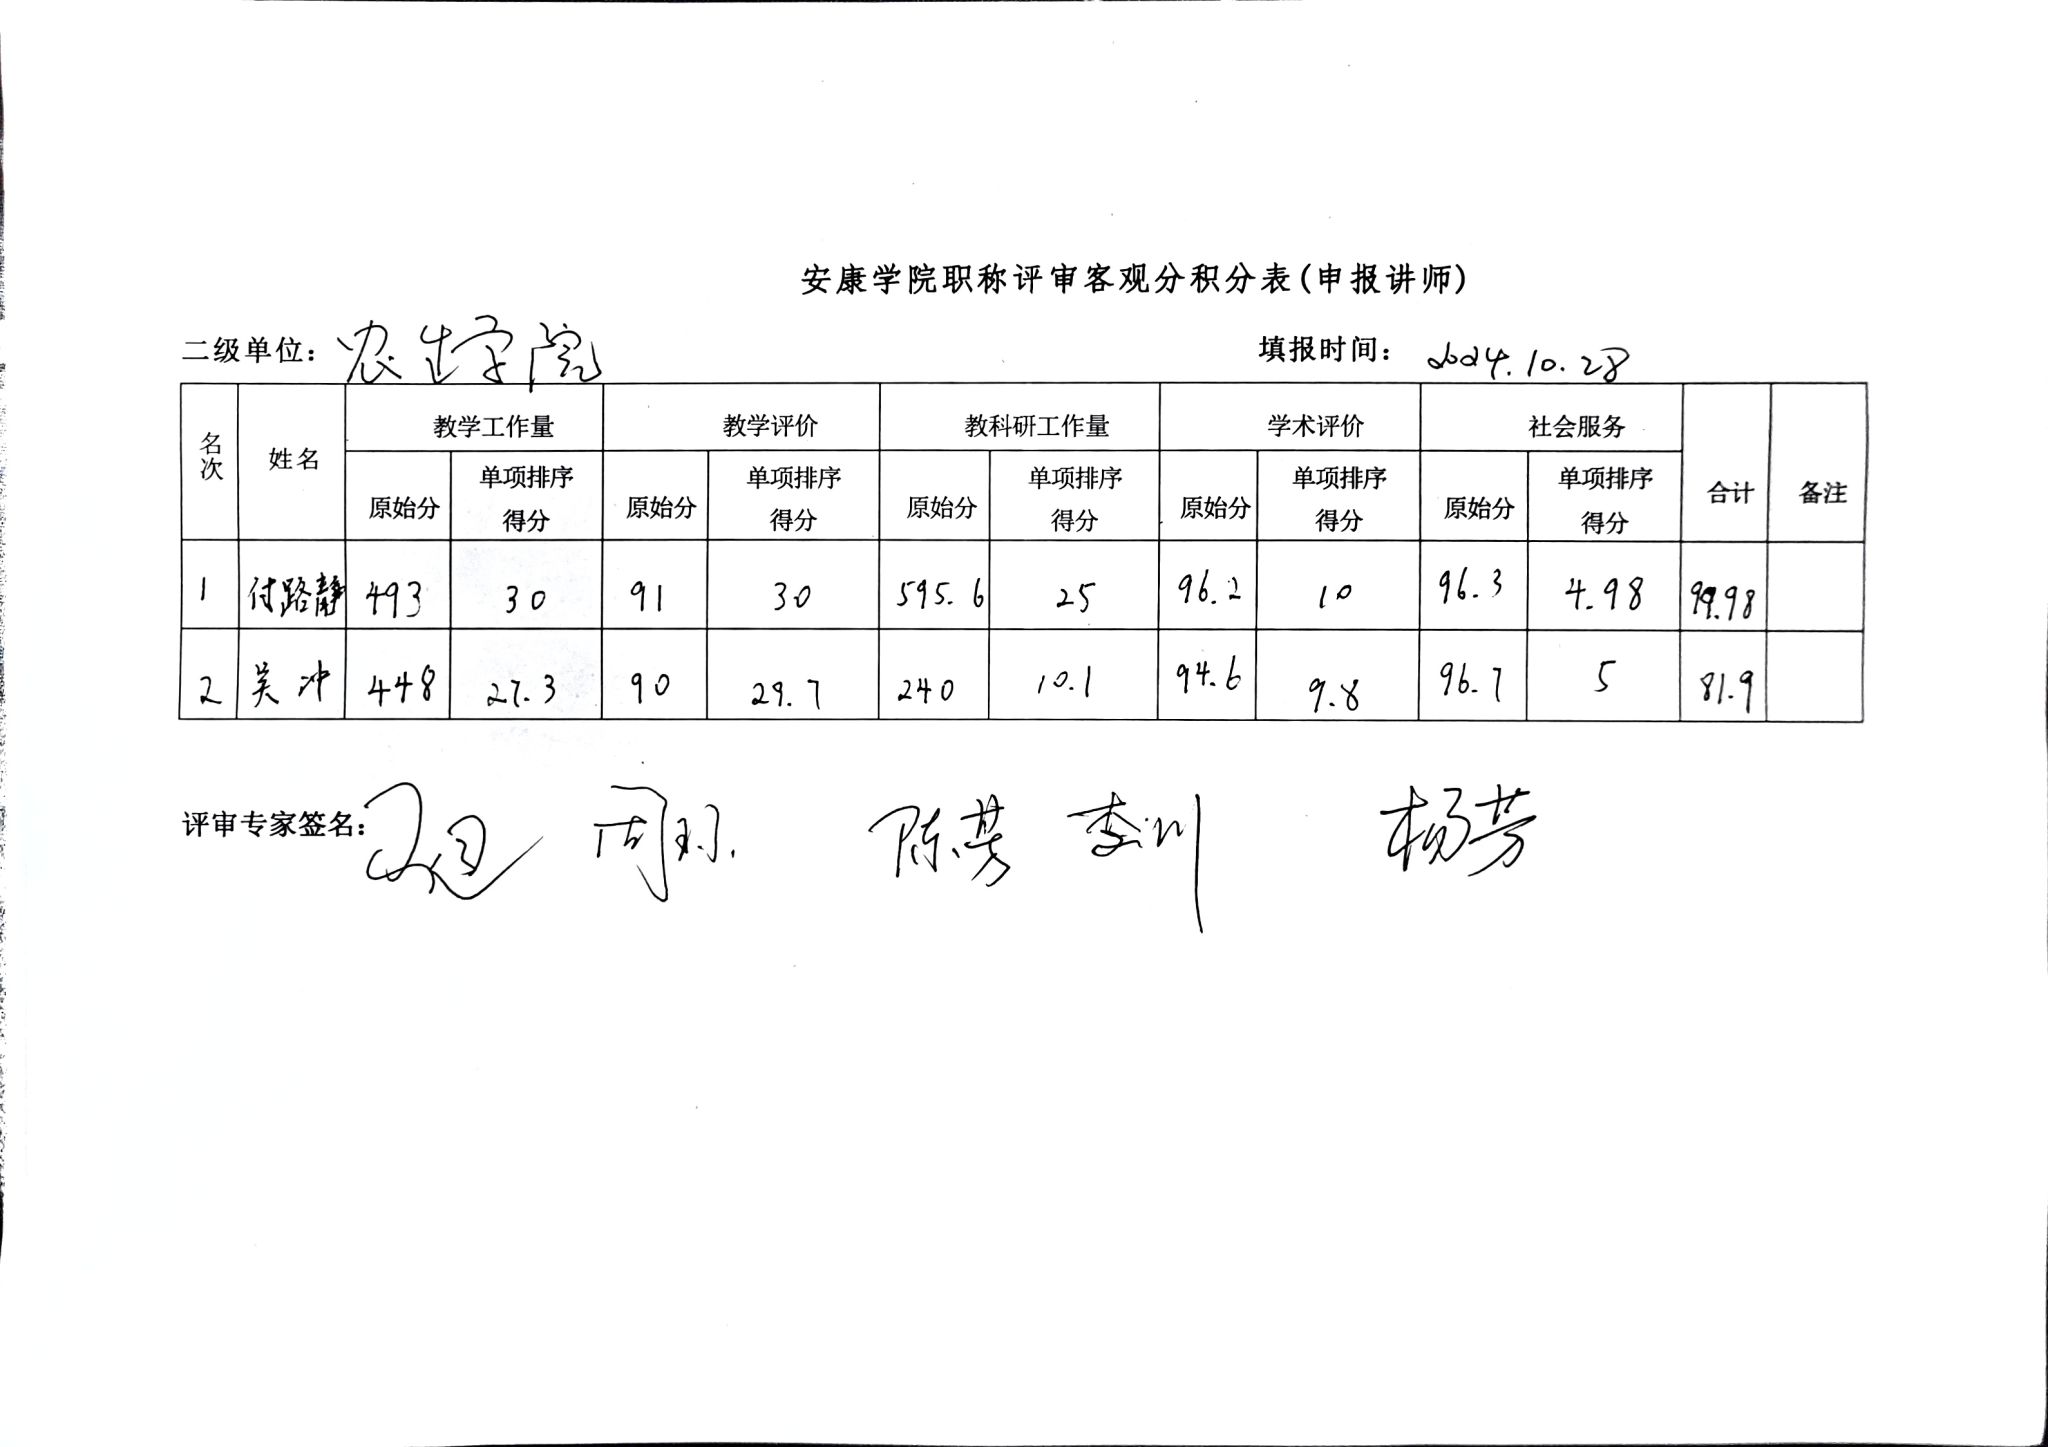 安康学院职称评审客观分积分表(申报讲师)
二级单位：农生学院 填报时间：2024.10.28
名次 姓名 教学工作量 教学评价 教科研工作量 学术评价 社会服务 合计 备注
原始分 单项排序得分 原始分 单项排序得分 原始分 单项排序得分 原始分 单项排序得分 原始分 单项排序得分
1 付路静 493 30 91 30 595.6 25 96.2 10 96.3 4.98 99.98
2 吴冲 448 27.3 90 29.7 240 10.1 94.6 9.8 96.7 5 81.9
评审专家签名： 陈芳 李川 杨芳